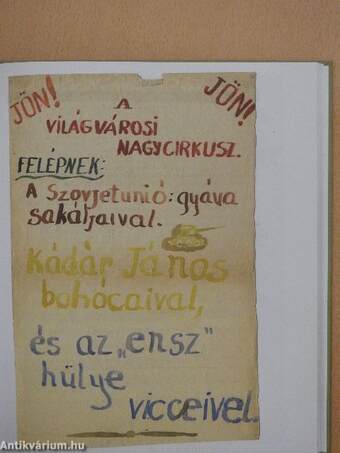 JÖN! JÖN!
A
VILÁGVÁROSI
NAGYCIRKUSZ.
FELÉPNEK:
A Szovjetunió: gyáva
sakáljaival.
Kádár János
bohócaival,
és az „ensz"
hülye
vicceivel.
Antikvárium.hu
antikvarium.hu